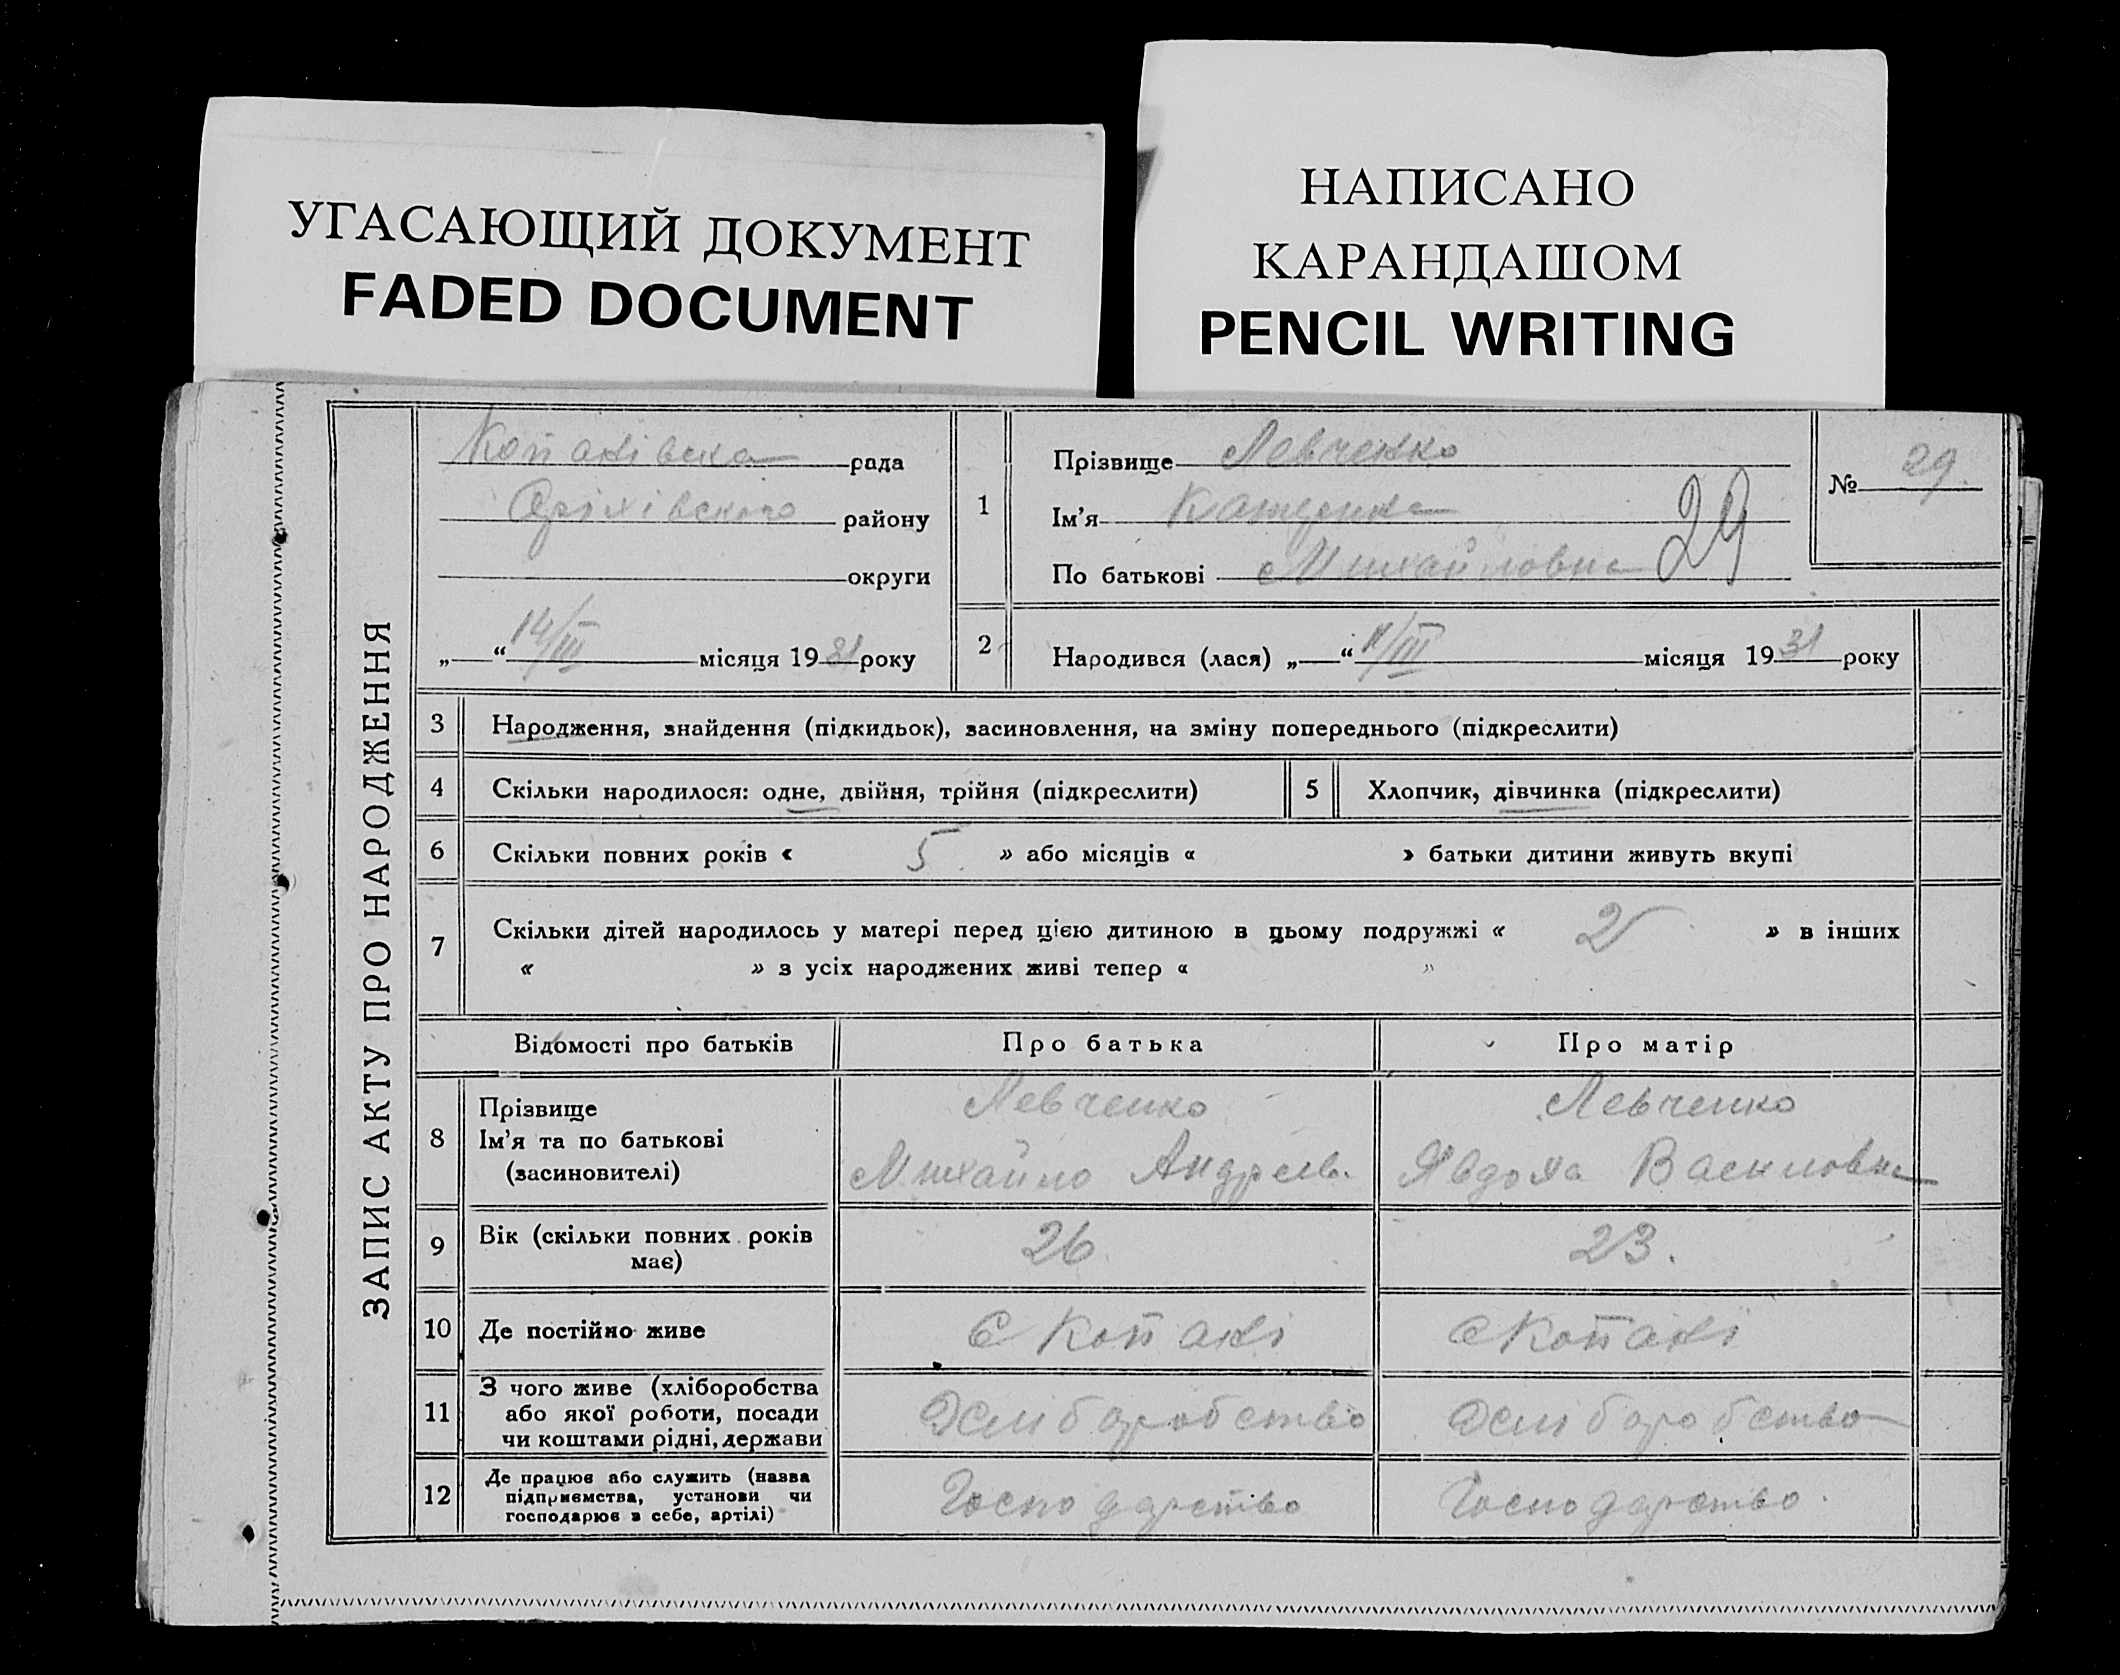 УГАСАЮЩИЙ ДОКУМЕНТ
FADED DOCUMENT
НАПИСАНО
КАРАНДАШОМ
PENCIL WRITING
ЗАПИС АКТУ ПРО НАРОДЖЕННЯ
Копанівска рада
Оріхівского району
округи
„ “ 14/III місяця 1931 року
1
Прізвище Левченко
Ім’я Катерина
По батькові Михайловна
29
№ 29.
2
Народився (лася) „ “ 11/III місяця 1931 року
3 Народження, знайдення (підкидьок), засиновлення, на зміну попереднього (підкреслити)
4 Скільки народилося: одне, двійня, трійня (підкреслити) 5 Хлопчик, дівчинка (підкреслити)
6 Скільки повних років « 5 » або місяців « » батьки дитини живуть вкупі
7 Скільки дітей народилось у матері перед цією дитиною в цьому подружжі « 2 » в інших
« » з усіх народжених живі тепер « »
Відомості про батьків Про батька Про матір
8 Прізвище
Ім’я та по батькові
(засиновителі)
Левченко
Михайло Андреев.
Левченко
Явдоха Василовна
9 Вік (скільки повних років
має)
26
23.
10 Де постійно живе С Копані С Копані
11 З чого живе (хліборобства
або якої роботи, посади
чи коштами рідні, держави
Хлиборобство
Хлиборобство
12 Де працює або служить (назва
підприємства, установи чи
господарює в себе, артілі)
Господарство
Господарство.